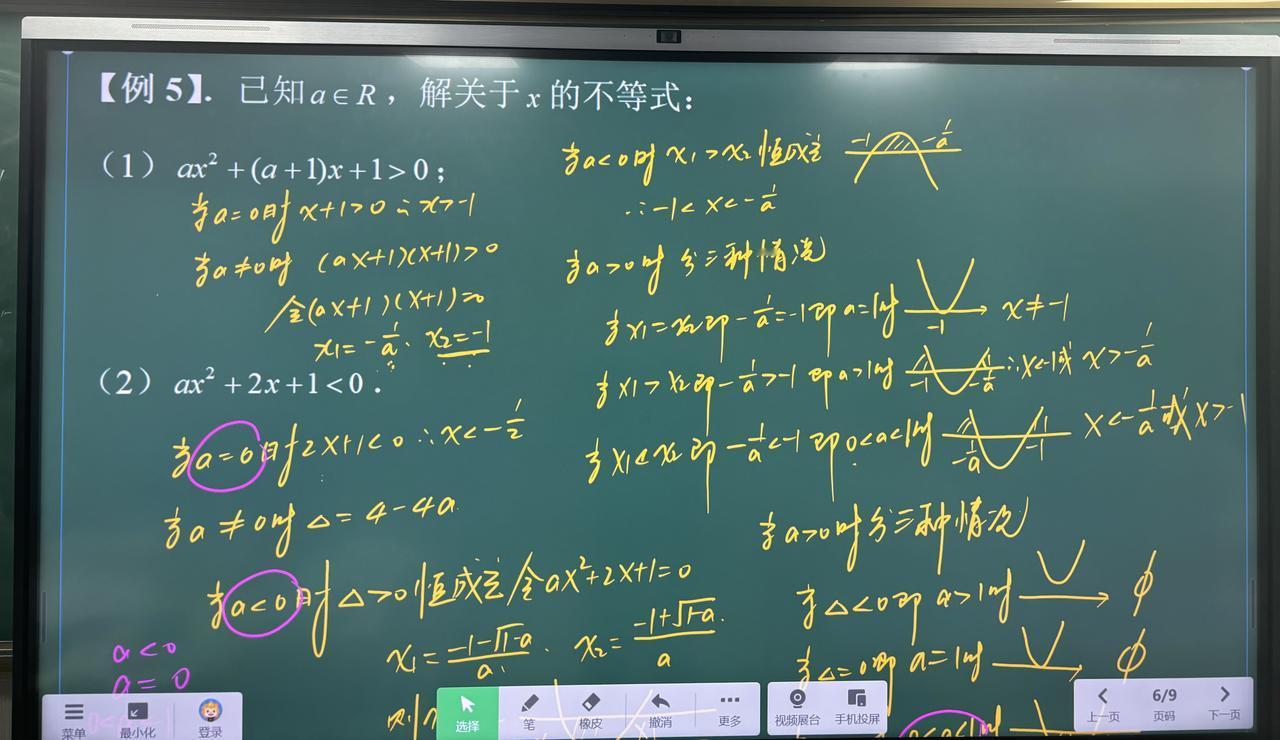 【例 5】. 已知 a∈R，解关于 x 的不等式：
（1） ax²+(a+1)x+1>0；
当a=0时 x+1>0 ∴x>-1
当a≠0时 (ax+1)(x+1)>0
令(ax+1)(x+1)=0
x₁=-1/a、x₂=-1
当a<0时 x₁>x₂恒成立 -1 -1/a
∴-1<x<-1/a
当a>0时 分三种情况
当x₁=x₂即-1/a=-1即a=1时 -1 x≠-1
当x₁>x₂即-1/a>-1即a>1时 -1 -1/a ∴x<-1或x>-1/a
当x₁<x₂即-1/a<-1即0<a<1时 -1/a -1 x<-1/a或x>-1
（2） ax²+2x+1<0．
当a=0时2x+1<0 ∴x<-1/2
当a≠0时 △=4-4a
当a<0时△>0恒成立 令ax²+2x+1=0
x₁=(-1-√(1-a))/a、x₂=(-1+√(1-a))/a
当a>0时分三种情况
当△<0即a>1时 ϕ
当△=0即a=1时 ϕ
a<0
a=0
菜单 最小化 登录
选择 笔 橡皮 撤消 更多
视频展台 手机投屏
上一页 6/9 页码 下一页